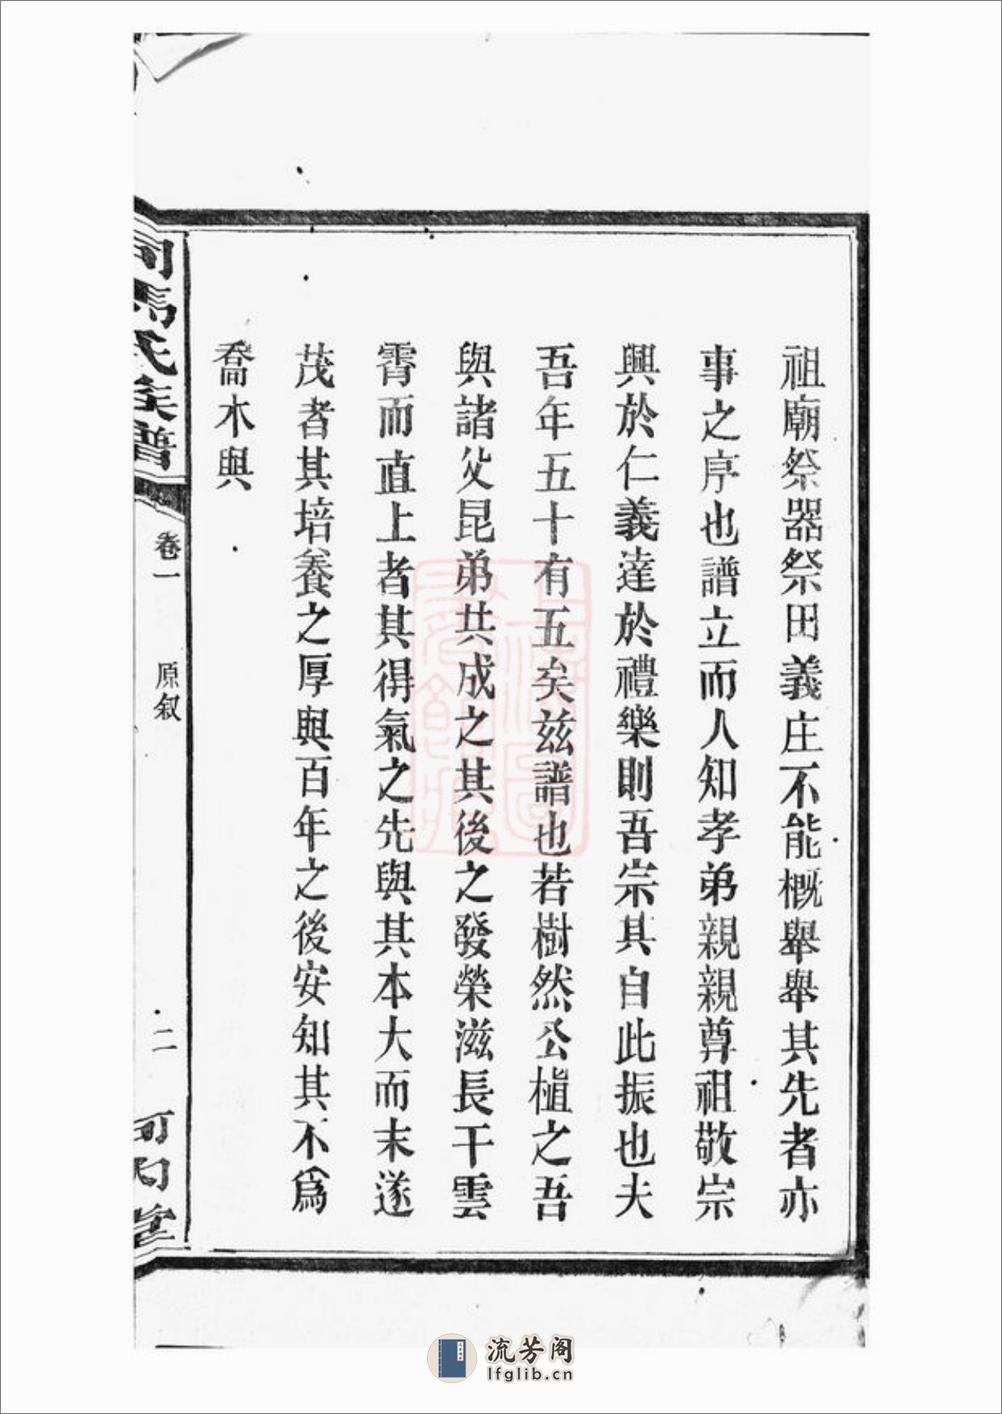 祖廟祭器祭田義庄不能概舉舉其先者亦
事之序也譜立而人知孝弟親親尊祖敬宗
興於仁義達於禮樂則吾宗其自此振也夫
吾年五十有五矣兹譜也若樹然公植之吾
與諸父昆弟共成之其後之發榮滋長干雲
霄而直上者其得氣之先與其本大而末遂
茂者其培養之厚與百年之後安知其不爲
喬木與
司馬氏族譜
卷一
原叙
二
河内堂
流芳阁
lfglib.cn